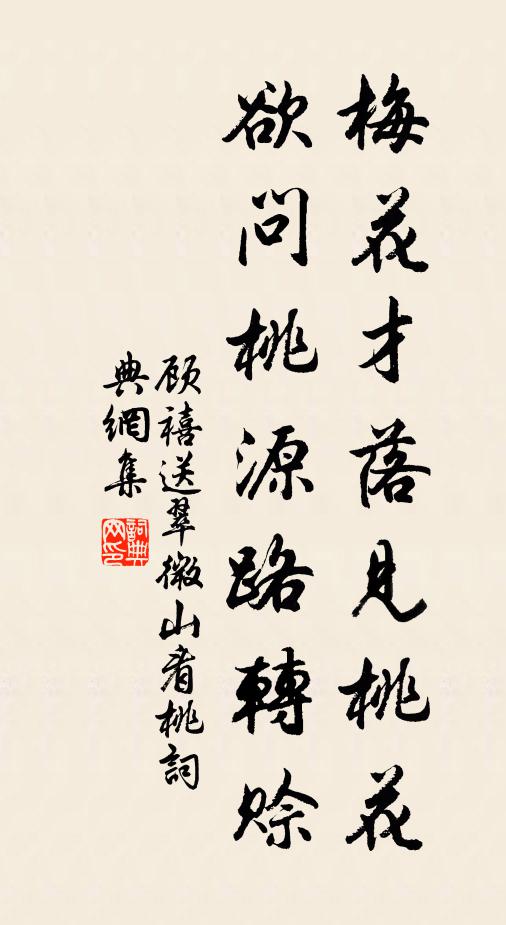 梅花才落見桃花
欲問桃源路轉賒
顧禧送翠微山看桃詞
典網集
詞典
网印